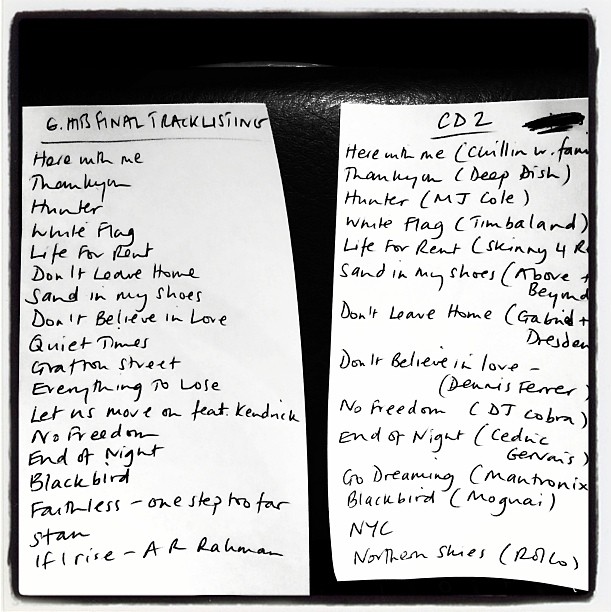 G. HITS FINAL TRACKLISTING
Here with me
Thankyou
Hunter
White Flag
Life For Rent
Don't Leave Home
Sand in my shoes
Don't Believe in Love
Quiet Times
Grafton Street
Everything To Lose
Let us move on feat. Kendrick
No Freedom
End of Night
Blackbird
Faithless - one step too far
Stan
If I rise - A R Rahman
CD 2
Here with me (Chillin w. fam
Thankyou (Deep Dish)
Hunter (MJ Cole)
White Flag (Timbaland)
Life For Rent (Skinny 4 R
Sand in my shoes (Above +
Beyond
Don't Leave Home (Gabriel +
Dresden
Don't Believe in love -
(Dennis Ferrer)
No Freedom (DJ Cobra)
End of Night (Cedric
Gervais)
Go Dreaming (Mantronix
Blackbird (Mogwai)
NYC
Northern Skies (Rollo)